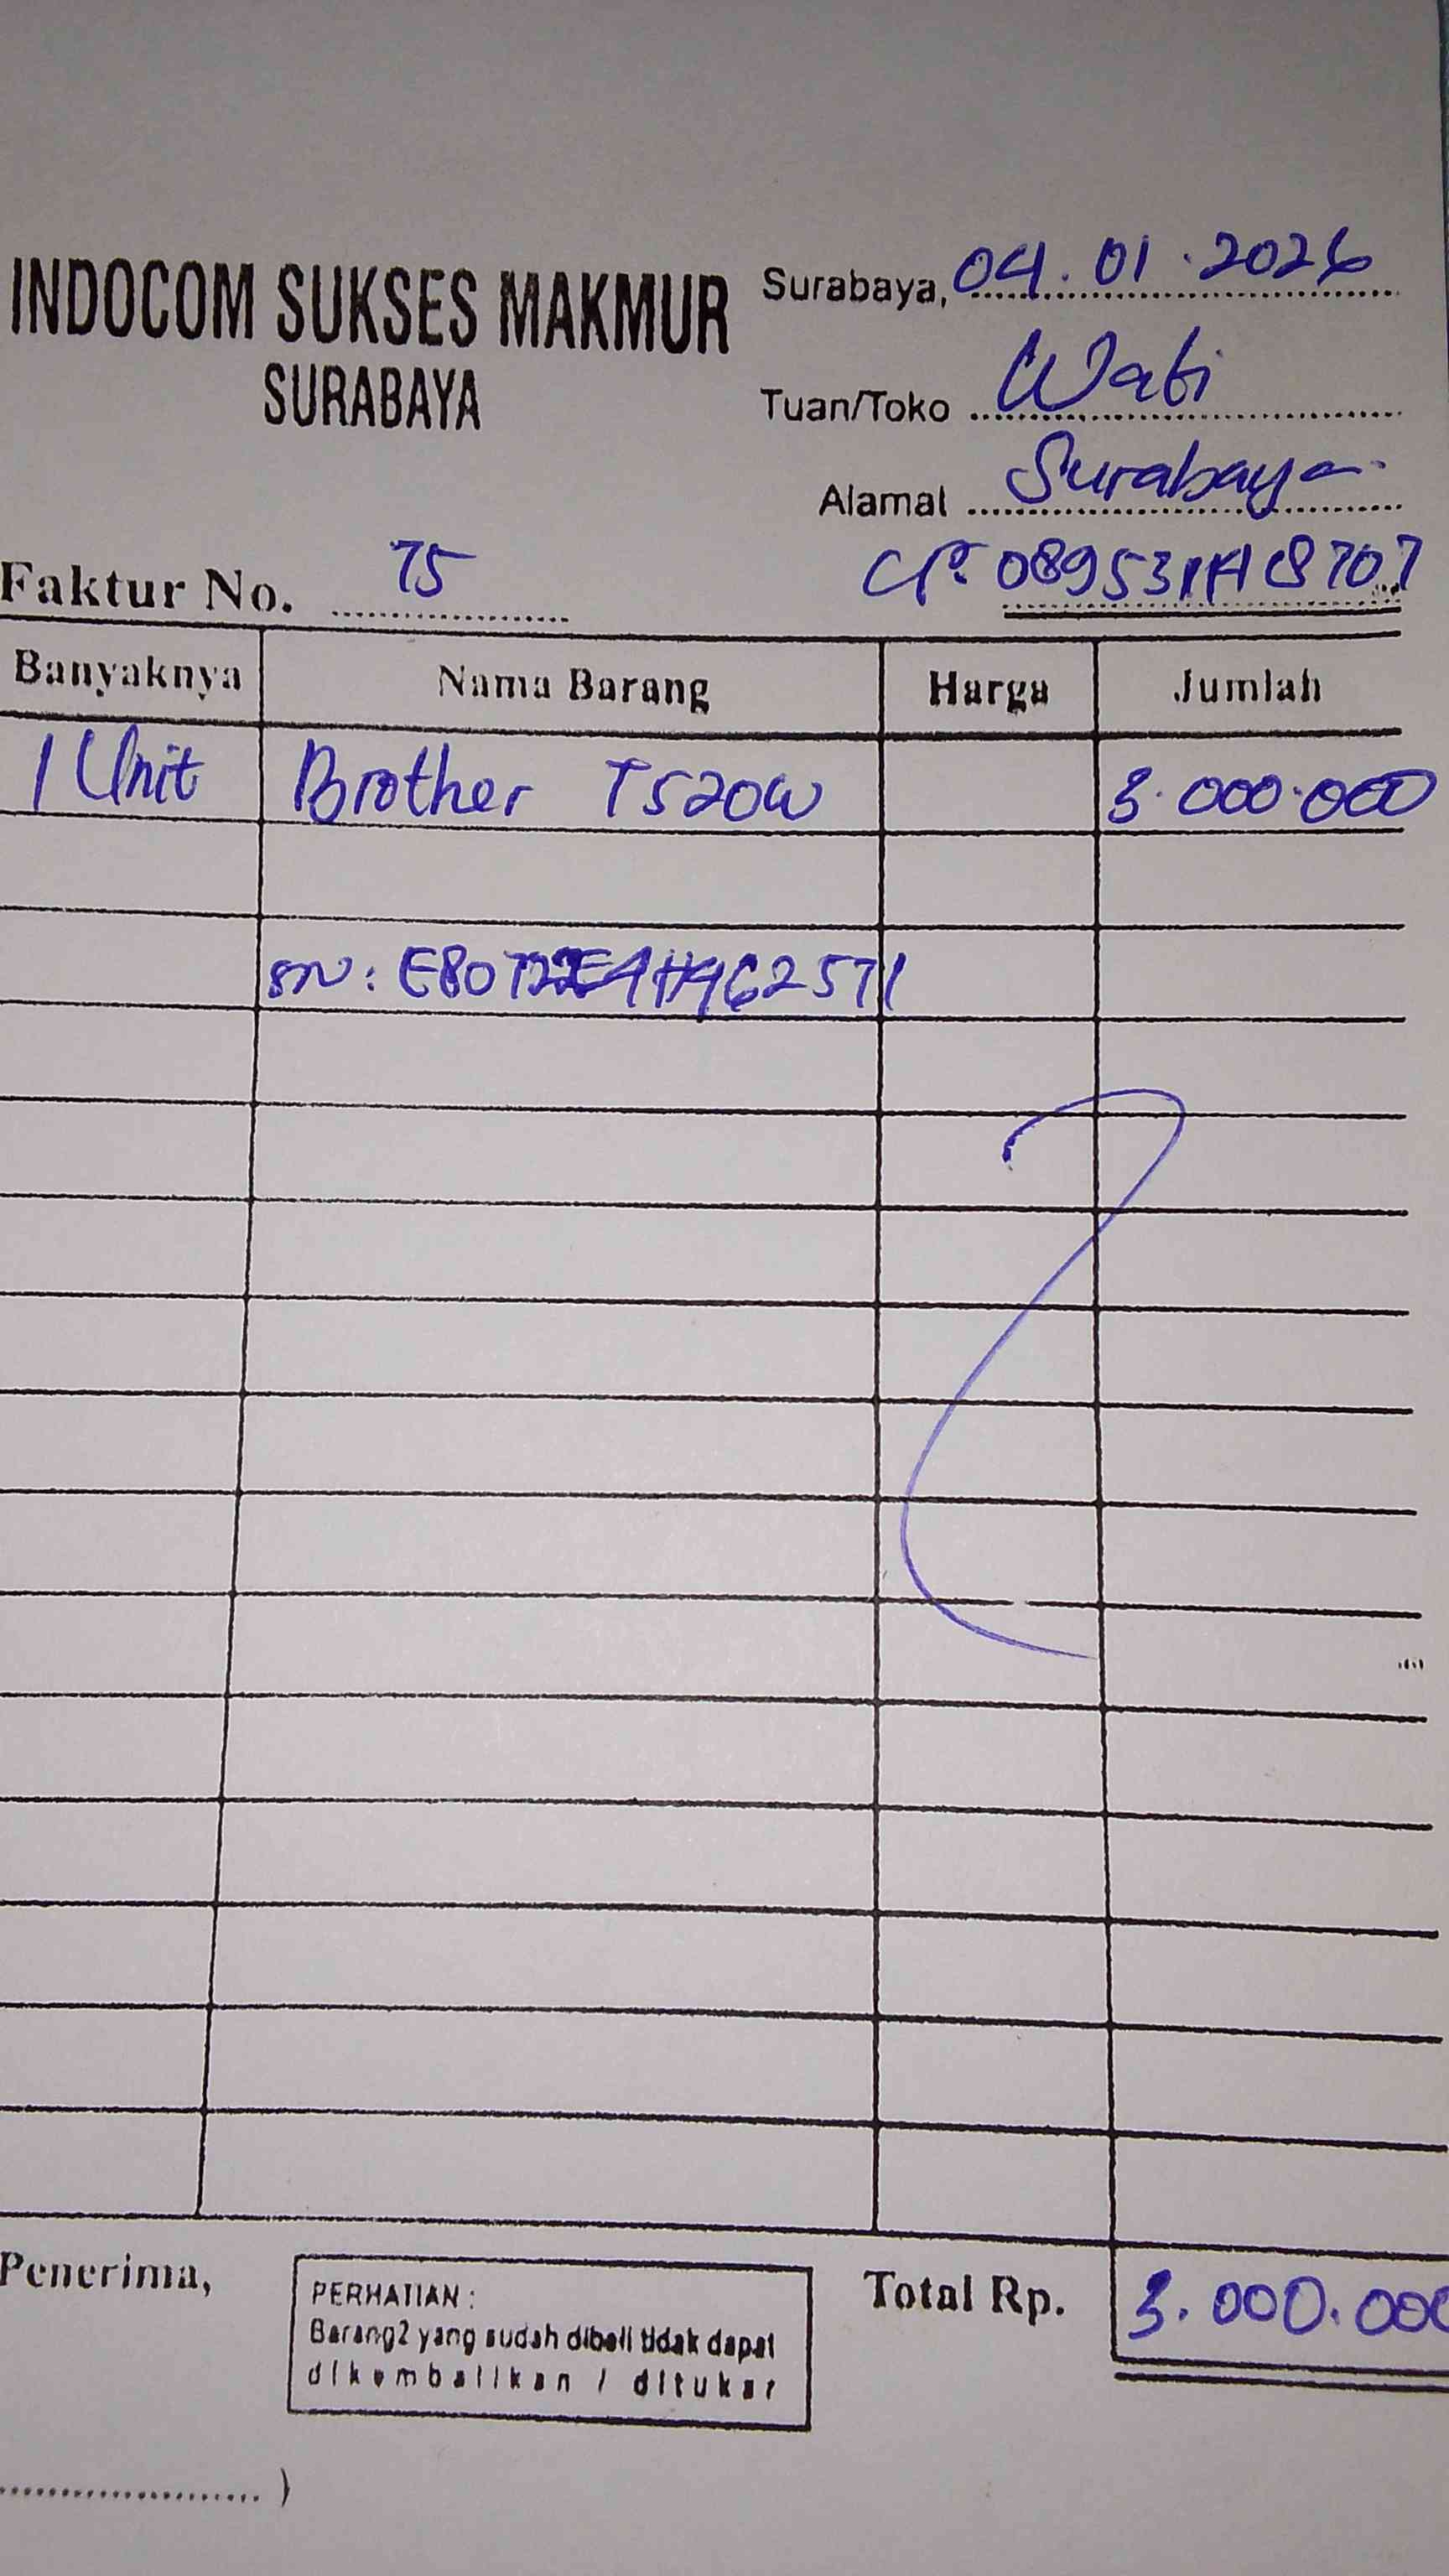 INDOCOM SUKSES MAKMUR
SURABAYA
Surabaya, 04.01.2026
Tuan/Toko Wati
Alamat Surabaya
Faktur No. 75
CP:
Banyaknya Nama Barang Harga Jumlah
1 Unit Brother T520W 3.000.000
SN:
Penerima,
PERHATIAN :
Barang2 yang sudah dibeli tidak dapat
dikembalikan / ditukar
Total Rp. 3.000.000
)